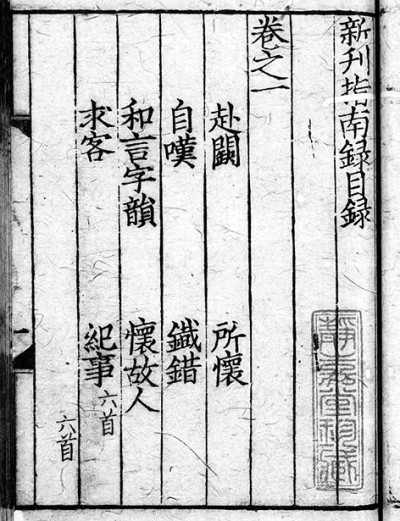 新刊指南録目録
靜嘉堂珍藏
卷之一
赴闕 所懷
自嘆 鐵錯
和言字韻 懷故人
求客 紀事 六首
六首